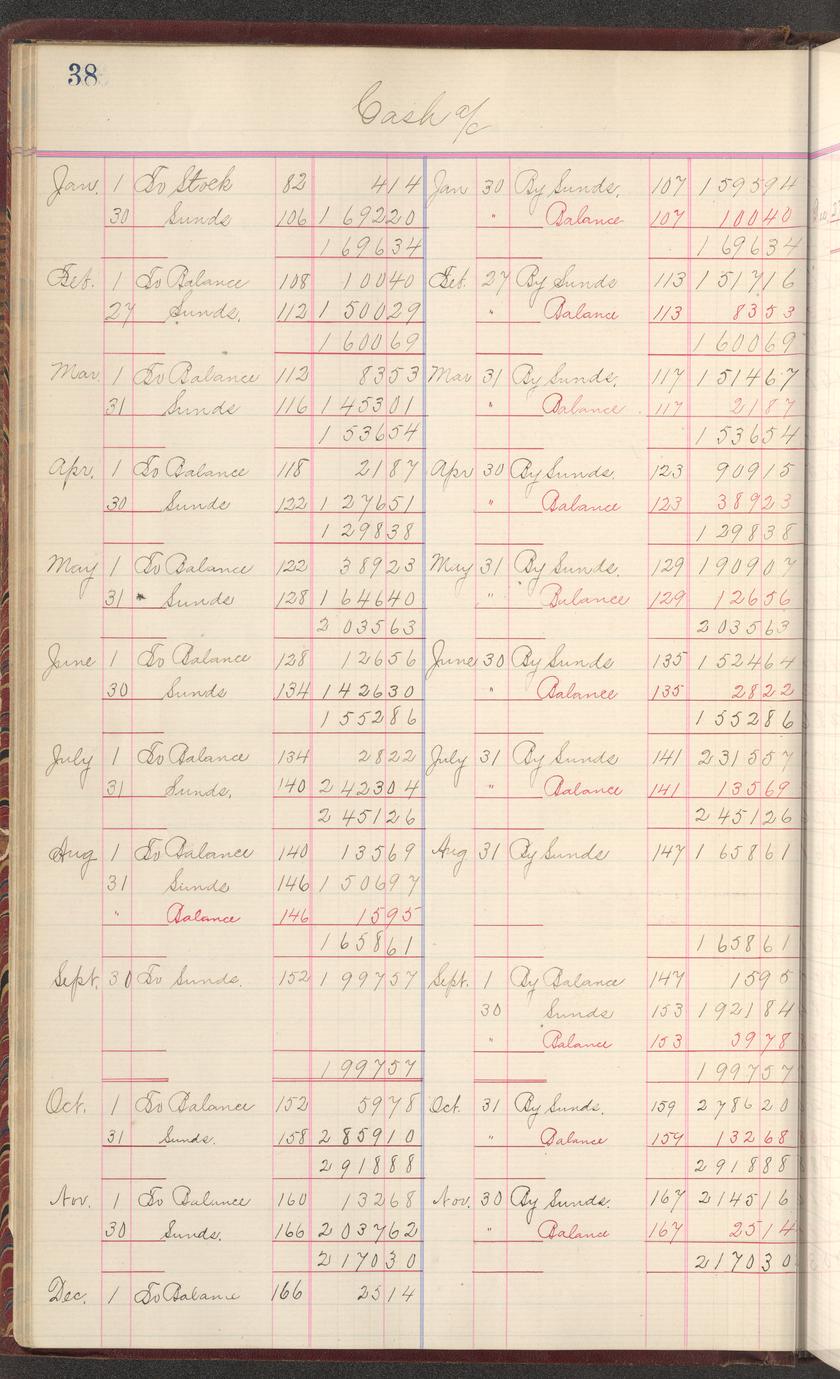 38
Cash a/c
Jan. 1 To Stock 82 414 Jan 30 By Sunds. 107 159594
30 Sunds 106 169220 " Balance 107 10040
169634 169634
Feb. 1 To Balance 108 10040 Feb. 27 By Sunds 113 151716
27 Sunds, 112 150029 " Balance 113 8353
160069 160069
Mar. 1 To Balance 112 8353 Mar 31 By Sunds, 117 151467
31 Sunds 116 145301 " Balance 117 2187
153654 153654
Apr. 1 To Balance 118 2187 Apr 30 By Sunds. 123 90915
30 Sunds 122 127651 " Balance 123 38923
129838 129838
May 1 To Balance 122 38923 May 31 By Sunds. 129 190907
31 Sunds 128 164640 " Balance 129 12656
203563 203563
June 1 To Balance 128 12656 June 30 By Sunds 135 152464
30 Sunds 134 142630 " Balance 135 2822
155286 155286
July 1 To Balance 134 2822 July 31 By Sunds 141 231557
31 Sunds, 140 242304 " Balance 141 13569
245126 245126
Aug 1 To Balance 140 13569 Aug 31 By Sunds 147 165861
31 Sunds 146 150697
" Balance 146 1595
165861 165861
Sept. 30 To Sunds. 152 199757 Sept. 1 By Balance 147 1595
30 Sunds 153 192184
" Balance 153 5978
199757 199757
Oct. 1 To Balance 152 5978 Oct. 31 By Sunds. 159 278620
31 Sunds. 158 285910 " Balance 159 13268
291888 291888
Nov. 1 To Balance 160 13268 Nov. 30 By Sunds. 167 214516
30 Sunds. 166 203762 " Balance 167 2514
217030 217030
Dec. 1 To Balance 166 2514